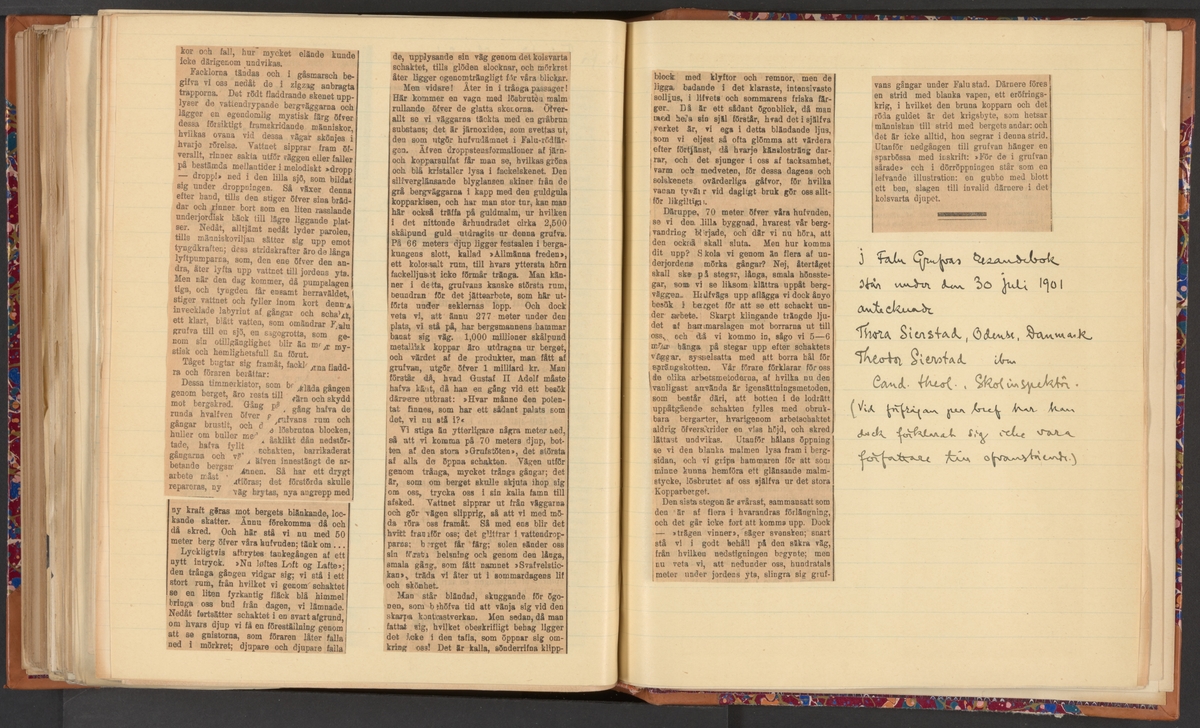 kor och fall, hur mycket elände kunde
icke därigenom undvikas.
Facklorna tändas och i gåsmarsch be-
gifva vi oss nedåt de i zigzag anbragta
trapporna. Det rödt fladdrande skenet upp-
lyser de vattendrypande bergväggarna och
lägger en egendomlig mystisk färg öfver
dessa försiktigt framskridande människor,
hvilkas ovana vid dessa vägar skönjes i
hvarje rörelse. Vattnet sipprar fram öf-
verallt, rinner sakta utför väggen eller faller
på bestämda mellantider i melodiskt »dropp
— dropp!» ned i den lilla sjö, som bildat
sig under droppningen. Så växer denna
efter hand, tills den stiger öfver sina bräd-
dar och rinner bort som en liten rasslande
underjordisk bäck till lägre liggande plat-
ser. Nedåt, alltjämt nedåt lyder parolen,
tills människoviljan sätter sig upp emot
tyngdkraften; dess stridskrafter äro de långa
lyftpumparna, som, den ene öfver den an-
dra, åter lyfta upp vattnet till jordens yta.
Men när den dag kommer, då pumpslagen
tiga, och tyngden får ensamt herraväldet,
stiger vattnet och fyller inom kort denna
invecklade labyrint af gångar och schakt,
ett klart, blått vatten, som omändrar Falu
grufva till en sjö, en sagogrotta, som ge-
nom sin otillgänglighet blir än mer my-
stisk och hemlighetsfull än förut.
Tåget bugtar sig framåt, facklorna fladd-
ra och föraren berättar:
Dessa timmerkistor, som be kläda gången
genom berget, äro resta till värn och skydd
mot bergskred. Gång på gång hafva de
runda hvalfven öfver grufvans rum och
gångar brustit, och de lösbrutna blocken,
huller om buller mo äsklikt dån nedstör-
tade, hafva fyllt schakten, barrikaderat
gångarna och väl äfven innestängt de ar-
betande bergsmännen. Så har ett drygt
arbete måst utföras; det förstörda skulle
repareras, ny väg brytas, nya angrepp med
ny kraft göras mot bergets blänkande, loc-
kande skatter. Ännu förekomma då och
då skred. Och här stå vi nu med 50
meter berg öfver våra hufvuden; tänk om...
Lyckligtvis afbrytes tankegången af ett
nytt intryck. »Nu løftes Loft og Lafte»;
den trånga gången vidgar sig; vi stå i ett
stort rum, från hvilket vi genom schaktet
se en liten fyrkantig fläck blå himmel
bringa oss bud från dagen, vi lämnade.
Nedåt fortsätter schaktet i en svart afgrund,
om hvars djup vi få en föreställning genom
att se gnistorna, som föraren låter falla
ned i mörkret; djupare och djupare falla
de, upplysande ein väg genom det kolsvarta
schaktet, tills glöden slocknar, och mörkret
åter ligger ogenomträngligt för våra blickar.
Men vidare! Åter in i trånga passager!
Här kommer en vagn med lösbruten malm
rullande öfver de glatta skenorna. Öfver-
allt se vi väggarna täckta med en gråbrun
substans; det är järnoxiden, som svettas ut,
den som utgör hufvudämnet i Falu-rödfär-
gen. Äfven droppstensformationer af järn-
och kopparsulfat får man se, hvilkas gröna
och blå kristaller lysa i fackelskenet. Den
silfverglänsande blyglansen skiner från de
grå bergväggarna i kapp med den guldgula
kopparkisen, och har man stor tur, kan man
här också träffa på guldmalm, ur hvilken
i det nittonde århundradet cirka 2,500
skålpund guld utdragits ur denna grufva.
På 66 meters djup ligger festsalen i berga-
kungens slott, kallad »Allmänna freden»,
ett kolossalt rum, till hvars yttersta hörn
fackelljuset icke förmår tränga. Man kän-
ner i detta, grufvans kanske största rum,
beundran för det jättearbete, som här ut-
förts under seklernas lopp. Och dock
veta vi, att ännu 277 meter under den
plats, vi stå på, har bergsmannens hammar
banat sig väg. 1,000 millioner skålpund
metallisk koppar äro utdragna ur berget,
och värdet af de produkter, man fått af
grufvan, utgör öfver 1 milliard kr. Man
förstår då, hvad Gustaf II Adolf måste
hafva känt, då han en gång vid ett besök
därnere utbrast: »Hvar männe den poten-
tat finnes, som har ett sådant palats som
det, vi nu stå i?«
Vi stiga än ytterligare några meter ned,
så att vi komma på 70 meters djup, bot-
ten af den stora »Grufstöten», det största
af alla de öppna schakten. Vägen utför
genom trånga, mycket trånga gångar; det
är, som om berget skulle skjuta ihop sig
om oss, trycka oss i sin kalla famn till
afsked. Vattnet sipprar ut från väggarna
och gör vägen slipprig, så att vi med mö-
da röra oss framåt. Så med ens blir det
hvitt framför oss; det glittrar i vattendrop-
parna: berget får färg; solen sänder oss
sin första helsning och genom den långa,
smala gång, som fått namnet »Svafvelstic-
kan», träda vi åter ut i sommardagens lif
och skönhet.
Man står bländad, skuggande för ögo-
nen, som behöfva tid att vänja sig vid den
skarpa kontrastverkan. Men sedan, då man
fattat sig, hvilket obeskrifligt behag ligger
det icke i den tafla, som öppnar sig om-
kring oss! Det är kalla, sönderrifna klipp-
block med klyftor och remnor, men de
ligga badande i det klaraste, intensivaste
solljus, i lifvets och sommarens friska fär-
ger. Då är ett sådant ögonblick, då man
med hela sin själ förstår, hvad det i själfva
verket är, vi ega i detta bländande ljus,
som vi eljest så ofta glömma att värdera
efter förtjänst, då hvarje känslosträng dar-
rar, och det sjunger i oss af tacksamhet,
varm och medveten, för dessa dagens och
solskenets ovärderliga gåfvor, för hvilka
vanan tyvärr vid dagligt bruk gör oss allt
för likgiltiga.
Däruppe, 70 meter öfver våra hufvuden,
se vi den lilla byggnad, hvarest vår berg-
vandring började, och där vi nu höra, att
den också skall sluta. Men hur komma
dit upp? Skola vi genom än flera af un-
derjordens mörka gångar? Nej, återtåget
skall ske på stegar, långa, smala hönsste-
gar, som vi se liksom klättra uppåt berg-
väggen. Halfvägs upp aflägga vi dock ännu
besök i berget för att se ett schackt un-
der arbete. Skarpt klingande trängde lju-
det af hammarslagen mot borrarna ut till
oss, och då vi kommo in, sågo vi 5—6
män hänga på stegar upp efter schaktets
väggar, sysselsatta med att borra hål för
sprängskotten. Vår förare förklarar för oss
de olika arbetsmetoderna, af hvilka nu den
vanligast använda är igensättningsmetoden,
som består däri, att botten i de lodrätt
uppåtgående schakten fylles med obruk-
bara bergarter, hvarigenom arbetsschaktet
aldrig öfverskrider en viss höjd, och skred
lättast undvikas. Utanför hålans öppning
se vi den blanka malmen lysa fram i berg-
sidan, och vi gripa hammaren för att som
minne kunna hemföra ett glänsande malm-
stycke, lösbrutet af oss själfva ur det stora
Kopparberget.
Den sista stegen är svårast, sammansatt som
den är af flera i hvarandras förlängning,
och det går icke fort att komma upp. Dock
— »trägen vinner», säger svensken; snart
stå vi i godt behåll på den säkra väg,
från hvilken nedstigningen begynte; men
nu veta vi, att nedunder oss, hundratals
meter under jordens yta, slingra sig gruf-
vans gångar under Falu stad. Därnere föres
en strid med blanka vapen, ett eröfrings-
krig, i hvilket den bruna kopparn och det
röda guldet är det krigsbyte, som hetsar
människan till strid med bergets andar: och
det är icke alltid, hon segrar i denna strid.
Utanför nedgången till grufvan hänger en
sparbössa med inskrift: »För de i grufvan
sårade» och i dörröppningen står som en
lefvande illustration: en gubbe med blott
ett ben, slagen till invalid därnere i det
kolsvarta djupet.
I Falu Grufvas Resandebok
står under den 30 juli 1901
antecknade
Thora Sierstad, Odense, Danmark
Theodor Sierstad ibm
Cand. theol., Skolinspektör.
(Vid förfrågan per bref har han
dock förklarat sig icke vara
författare till ofvanstående.)